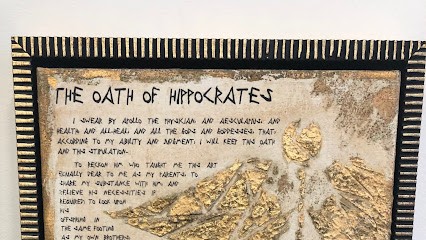 THE OATH OF HIPPOCRATES
I SWEAR BY APOLLO THE PHYSICIAN AND AESCULAPIUS AND
HEALTH AND ALL-HEAL AND ALL THE GODS AND GODDESSES THAT
ACCORDING TO MY ABILITY AND JUDGMENT I WILL KEEP THIS OATH
AND THIS STIPULATION.
TO RECKON HIM WHO TAUGHT ME THIS ART
EQUALLY DEAR TO ME AS MY PARENTS TO
SHARE MY SUBSTANCE WITH HIM AND
RELIEVE HIS NECESSITIES IF
REQUIRED TO LOOK UPON
HIS
OFFSPRING IN
THE SAME FOOTING
AS MY OWN BROTHERS